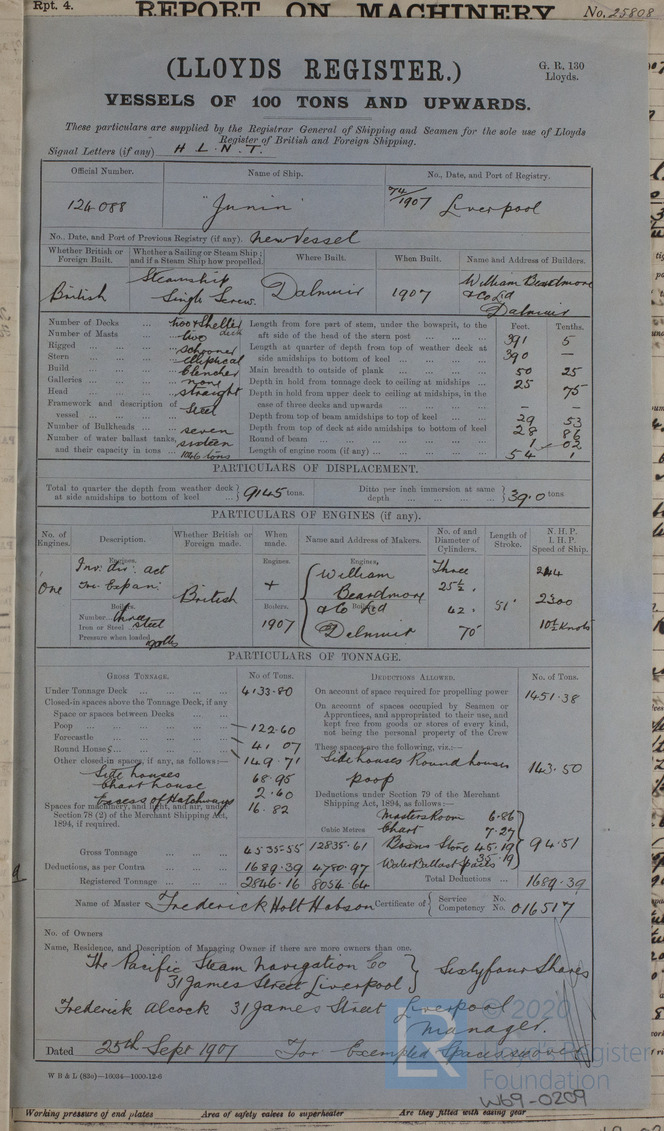 Rpt. 4.
REPORT ON MACHINERY
No. 25808
(LLOYDS REGISTER.)
G. R. 130
Lloyds.
VESSELS OF 100 TONS AND UPWARDS.
These particulars are supplied by the Registrar General of Shipping and Seamen for the sole use of Lloyds
Register of British and Foreign Shipping.
Signal Letters (if any) H L. N. T.
Official Number. Name of Ship. No., Date, and Port of Registry.
124088 "Junin" 74/1907 Liverpool
No., Date, and Port of Previous Registry (if any). New Vessel
Whether British or Foreign Built. Whether a Sailing or Steam Ship; and if a Steam Ship how propelled. Where Built. When Built. Name and Address of Builders.
British Steamship Single Screw. Dalmuir 1907 William Beardmore & Co Ld Dalmuir
Number of Decks ... two & Shelter deck
Number of Masts ... two
Rigged ... schooner
Stern ... elliptical
Build ... Clencher
Galleries ... none
Head ... straight
Framework and description of vessel ... Steel
Number of Bulkheads ... seven
Number of water ballast tanks, and their capacity in tons ... sixteen 1046 tons
Feet. Tenths.
Length from fore part of stem, under the bowsprit, to the aft side of the head of the stern post ... 391 5
Length at quarter of depth from top of weather deck at side amidships to bottom of keel ... 390 —
Main breadth to outside of plank ... 50 25
Depth in hold from tonnage deck to ceiling at midships ... 25 75
Depth in hold from upper deck to ceiling at midships, in the case of three decks and upwards ... — —
Depth from top of beam amidships to top of keel ... 29 53
Depth from top of deck at side amidships to bottom of keel 28 86
Round of beam ... 1 02
Length of engine room (if any) ... 54 1
PARTICULARS OF DISPLACEMENT.
Total to quarter the depth from weather deck at side amidships to bottom of keel ... 9145 tons. Ditto per inch immersion at same depth ... 39.0 tons
PARTICULARS OF ENGINES (if any).
No. of Engines. Description. Whether British or Foreign made. When made. Name and Address of Makers. No. of and Diameter of Cylinders. Length of Stroke. N. H. P. I. H. P. Speed of Ship.
Engines. Engines. Engines.
One Inv: dir: act Tri: Expan: British William Beardmore & Co Ld Dalmuir Three 25½" 42" 70" 51" 2300 10½ Knots
Boilers. Boilers. Boilers.
Number three
Iron or Steel steel 1907
Pressure when loaded 190 lbs
PARTICULARS OF TONNAGE.
GROSS TONNAGE. No of Tons. DEDUCTIONS ALLOWED. No. of Tons.
Under Tonnage Deck ... 4133.80
Closed-in spaces above the Tonnage Deck, if any
Space or spaces between Decks ...
Poop ... 122.60
Forecastle ... 41 07
Round Houses ... 149.71
Other closed-in spaces, if any, as follows:—
Side houses 68.95
Chart house 2.60
Excess of Hatchways 16.82
Spaces for machinery, and light, and air, under Section 78 (2) of the Merchant Shipping Act, 1894, if required.
Cubic Metres
Gross Tonnage ... 4535.55 12835.61
Deductions, as per Contra ... 1689.39 4780.97
Registered Tonnage ... 2846.16 8054.64
On account of space required for propelling power 1451.38
On account of spaces occupied by Seamen or Apprentices, and appropriated to their use, and kept free from goods or stores of every kind, not being the personal property of the Crew
These spaces are the following, viz.:—
Side houses Round houses poop 143.50
Deductions under Section 79 of the Merchant Shipping Act, 1894, as follows:—
Masters Room 6.86
Chart 7.27
Bosns Store 45.19
Water Ballast Spaces 35.19
94.51
Total Deductions ... 1689.39
Name of Master Frederick Holt Hobson Certificate of Service No. Competency No. 016517
No. of Owners
Name, Residence, and Description of Managing Owner if there are more owners than one.
The Pacific Steam Navigation Co
31 James Street Liverpool } Sixty four Shares
Frederick Alcock 31 James Street Liverpool
Manager.
Dated 25th Sept 1907 For Exempted Spaces see over
W B & L (83o)—10034—1000-12-6
LR © 2020
Lloyd's Register
Foundation
W69-0209
Working pressure of end plates Area of safety valves to superheater Are they fitted with easing gear